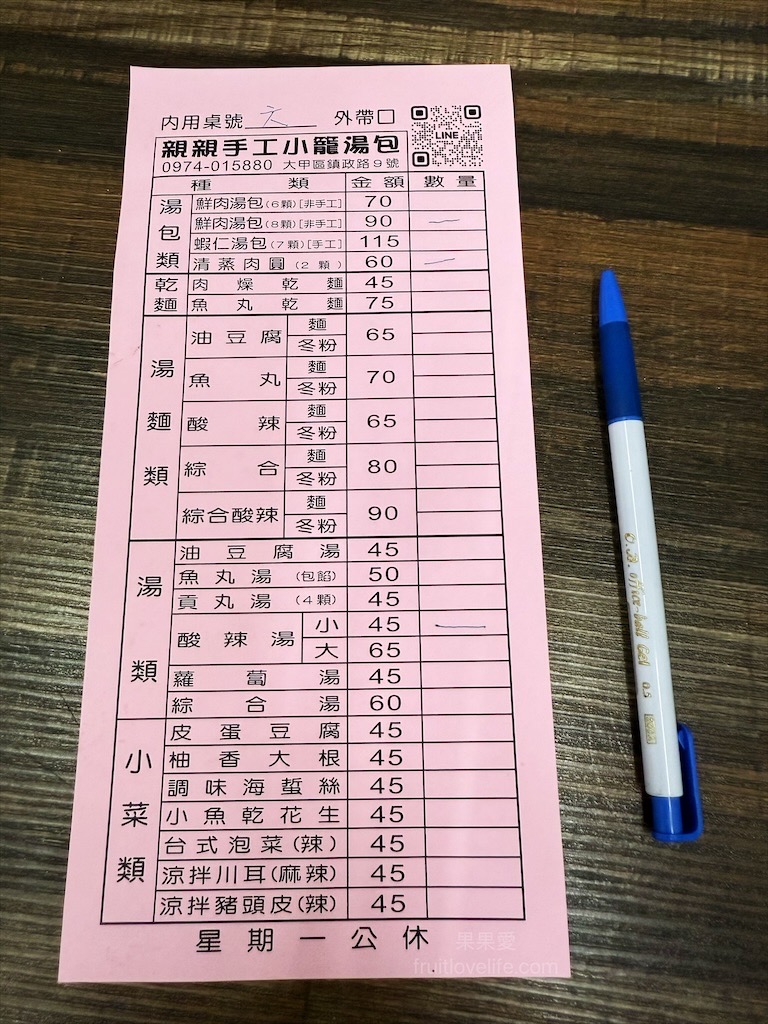 內用桌號 六 外帶口
LINE
親親手工小籠湯包
0974-015880 大甲區鎮政路9號
種類 金額 數量
湯包類
鮮肉湯包(6顆)[非手工] 70
鮮肉湯包(8顆)[非手工] 90 一
蝦仁湯包(7顆)[手工] 115
清蒸肉圓(2顆) 60 一
乾麵
肉燥乾麵 45
魚丸乾麵 75
湯麵類
油豆腐 麵 冬粉 65
魚丸 麵 冬粉 70
酸辣 麵 冬粉 65
綜合 麵 冬粉 80
綜合酸辣 麵 冬粉 90
湯類
油豆腐湯 45
魚丸湯(包餡) 50
貢丸湯(4顆) 45
酸辣湯 小 45 一
大 65
蘿蔔湯 45
綜合湯 60
小菜類
皮蛋豆腐 45
柚香大根 45
調味海蜇絲 45
小魚乾花生 45
台式泡菜(辣) 45
涼拌川耳(麻辣) 45
涼拌豬頭皮(辣) 45
星期一公休
果果愛
fruitlovelife.com
O.B. office ball Gel 0.5